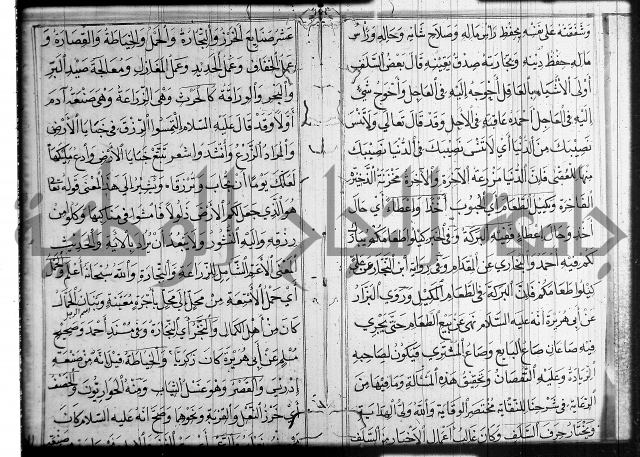 وشفقته على نفسه بحفظ رأس ماله وصلاح شأنه وحاله ورأس
ماله حفظ دينه وتجارته صدق يقينه قال بعض السلف
أولى الأشياء بالعاقل أحوجه إليه في العاجل وأحوج شيء
إليه في العاجل أحمده عاقبة في الآجل وقد قال تعالى ولا تنس
نصيبك من الدنيا أي لا تنس نصيبك في الدنيا نصيبك
فإن الدنيا مزرعة الآخرة
الفاخرة وكيل الطعام أي الحبوب أخذ وإعطاء أي حال
أخذ وحال إعطاء ففيه البركة وفي خبر كيلوا طعامكم يبارك
لكم فيه أحمد والبخاري عن المقدام وفي رواية ابن النجار عن علي
كيلوا طعامكم فإن البركة في الطعام المكيل وروى البزار
عن أبي هريرة أنه عليه السلام نهى عن بيع الطعام حتى يجري
فيه صاعان صاع البايع وصاع المشتري فيكون لصاحبه
الزيادة وعليه النقصان وتحقيق هذه المسألة وما فيها من
الرعاية في شرحنا للنقاية مختصر الوقاية والله ولي الهداية
ويختار حرف السلف وكان غالب أعمال الأخيار من السلف
عشر صنايع الخرز والتجارة والحمل والخياطة والقصارة و
عمل الخفاف وعمل الحديد وعمل المغازل ومعالجة صيد البر
والبحر والوراقة كالحرث وهي الزراعة وهي صنعة آدم
أولا وقد قال عليه السلام التمسوا الرزق في خبايا الأرض
والمراد الزرع وأنشد وا شعر تتبع خبايا الأرض وادع مليكها
لعلك يوما أن تجاب وترزقا ويشير إلى هذا المعنى قوله تعالى
هو الذي جعل لكم الأرض ذلولا فامشوا في مناكبها وكلوا من
رزقه وإليه النشور ولا يبعد أن يراد بالآية والحديث
المعنى الأعم الشامل للزراعة والتجارة والله سبحانه أعلم والحمل
أي حمل الأمتعة من محل إلى محل بأجرة معينة
كان من أهل الكمال والتجر أي التجارة وفي مسند أحمد وصحيح
مسلم عن أبي هريرة كان زكريا والخياطة قيل إنه من صنعة
إدريس والقصر وهو غسل الثياب ومنه الحواريون والخصف
أي خرز النعل والقربة ونحوها وصح أنه عليه السلام كان
جامعة النجاح الوطنية